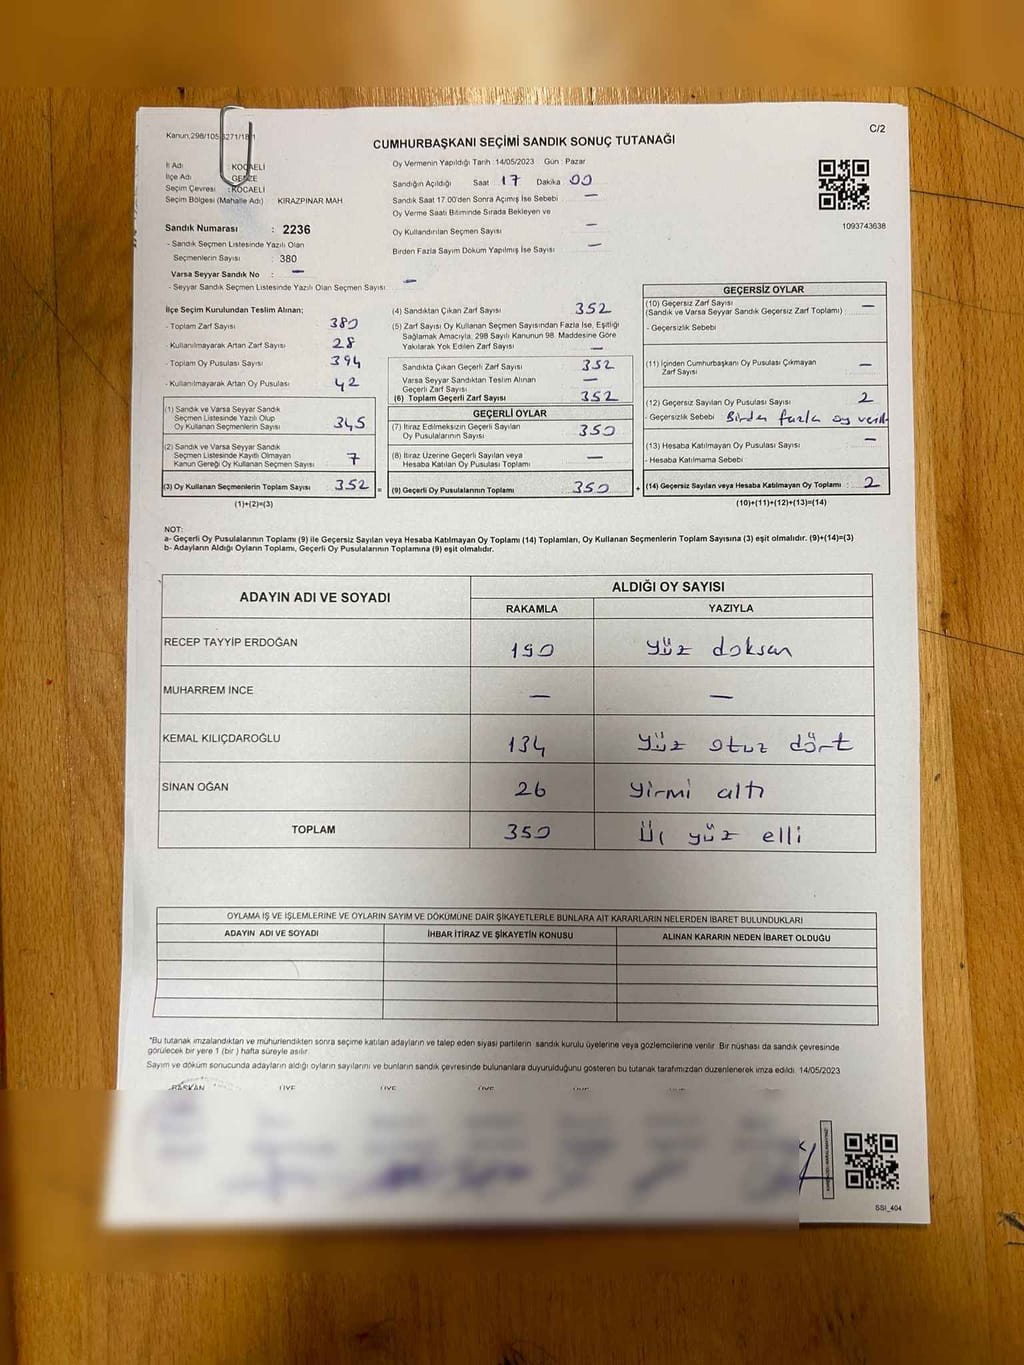 C/2
CUMHURBAŞKANI SEÇİMİ SANDIK SONUÇ TUTANAĞI
İl Adı : KOCAELİ
İlçe Adı : GEBZE
Seçim Çevresi : KOCAELİ
Seçim Bölgesi (Mahalle Adı) KIRAZPINAR MAH
Sandık Numarası : 2236
- Sandık Seçmen Listesinde Yazılı Olan
Seçmenlerin Sayısı : 380
Varsa Seyyar Sandık No : —
- Seyyar Sandık Seçmen Listesinde Yazılı Olan Seçmen Sayısı: —
Oy Vermenin Yapıldığı Tarih :14/05/2023 Gün : Pazar
Sandığın Açıldığı Saat 17 Dakika 00
Sandık Saat 17.00'den Sonra Açımış İse Sebebi —
Oy Verme Saati Bitiminde Sırada Bekleyen ve
Oy Kullandırılan Seçmen Sayısı —
Birden Fazla Sayım Döküm Yapılmış İse Sayısı —
1093743638
İlçe Seçim Kurulundan Teslim Alınan;
- Toplam Zarf Sayısı 380
- Kullanılmayarak Artan Zarf Sayısı 28
- Toplam Oy Pusulası Sayısı 394
- Kullanılmayarak Artan Oy Pusulası 42
(1) Sandık ve Varsa Seyyar Sandık
Seçmen Listesinde Yazılı Olup
Oy Kullanan Seçmenlerin Sayısı 345
(2) Sandık ve Varsa Seyyar Sandık
Seçmen Listesinde Kayıtlı Olmayan
Kanun Gereği Oy Kullanan Seçmen Sayısı 7
(3) Oy Kullanan Seçmenlerin Toplam Sayısı 352 =
(1)+(2)=(3)
(4) Sandıktan Çıkan Zarf Sayısı 352
(5) Zarf Sayısı Oy Kullanan Seçmen Sayısından Fazla İse, Eşitliği
Sağlamak Amacıyla, 298 Sayılı Kanunun 98. Maddesine Göre
Yakılarak Yok Edilen Zarf Sayısı —
Sandıkta Çıkan Geçerli Zarf Sayısı 352
Varsa Seyyar Sandıktan Teslim Alınan
Geçerli Zarf Sayısı —
(6) Toplam Geçerli Zarf Sayısı 352
GEÇERLİ OYLAR
(7) İtiraz Edilmeksizin Geçerli Sayılan
Oy Pusulalarının Sayısı 350
(8) İtiraz Üzerine Geçerli Sayılan veya
Hesaba Katılan Oy Pusulası Toplamı —
(9) Geçerli Oy Pusulalarının Toplamı 350 +
GEÇERSİZ OYLAR
(10) Geçersiz Zarf Sayısı
(Sandık ve Varsa Seyyar Sandık Geçersiz Zarf Toplamı) —
- Geçersizlik Sebebi
(11) İçinden Cumhurbaşkanı Oy Pusulası Çıkmayan
Zarf Sayısı —
(12) Geçersiz Sayılan Oy Pusulası Sayısı 2
- Geçersizlik Sebebi Birden fazla oy
(13) Hesaba Katılmayan Oy Pusulası Sayısı —
- Hesaba Katılmama Sebebi
(14) Geçersiz Sayılan veya Hesaba Katılmayan Oy Toplamı : 2
(10)+(11)+(12)+(13)=(14)
NOT:
a- Geçerli Oy Pusulalarının Toplamı (9) ile Geçersiz Sayılan veya Hesaba Katılmayan Oy Toplamı (14) Toplamları, Oy Kullanan Seçmenlerin Toplam Sayısına (3) eşit olmalıdır. (9)+(14)=(3)
b- Adayların Aldığı Oyların Toplamı, Geçerli Oy Pusulalarının Toplamına (9) eşit olmalıdır.
ADAYIN ADI VE SOYADI ALDIĞI OY SAYISI
RAKAMLA YAZIYLA
RECEP TAYYİP ERDOĞAN 190 yüz doksan
MUHARREM İNCE — —
KEMAL KILIÇDAROĞLU 134 yüz otuz dört
SİNAN OĞAN 26 yirmi altı
TOPLAM 350 Üç yüz elli
OYLAMA İŞ VE İŞLEMLERİNE VE OYLARIN SAYIM VE DÖKÜMÜNE DAİR ŞİKAYETLERLE BUNLARA AİT KARARLARIN NELERDEN İBARET BULUNDUKLARI
ADAYIN ADI VE SOYADI İHBAR İTİRAZ VE ŞİKAYETİN KONUSU ALINAN KARARIN NEDEN İBARET OLDUĞU
*Bu tutanak imzalandıktan ve mühürlendikten sonra seçime katılan adayların ve talep eden siyasi partilerin sandık kurulu üyelerine veya gözlemcilerine verilir. Bir nüshası da sandık çevresinde
görülecek bir yere 1 (bir) hafta süreyle asılır.
Sayım ve döküm sonucunda adayların aldığı oyların sayılarını ve bunların sandık çevresinde bulunanlara duyurulduğunu gösteren bu tutanak tarafımızdan düzenlenerek imza edildi. 14/05/2023
BAŞKAN ÜYE ÜYE ÜYE ÜYE
SSI_404